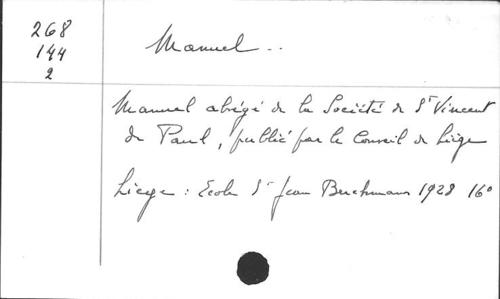 268
144
2
Manuel..
Manuel abrégé de la Société de St Vincent
de Paul, publié par le Conseil de Liège
Liège : Ecole St Jean Berchmans 1928 16°